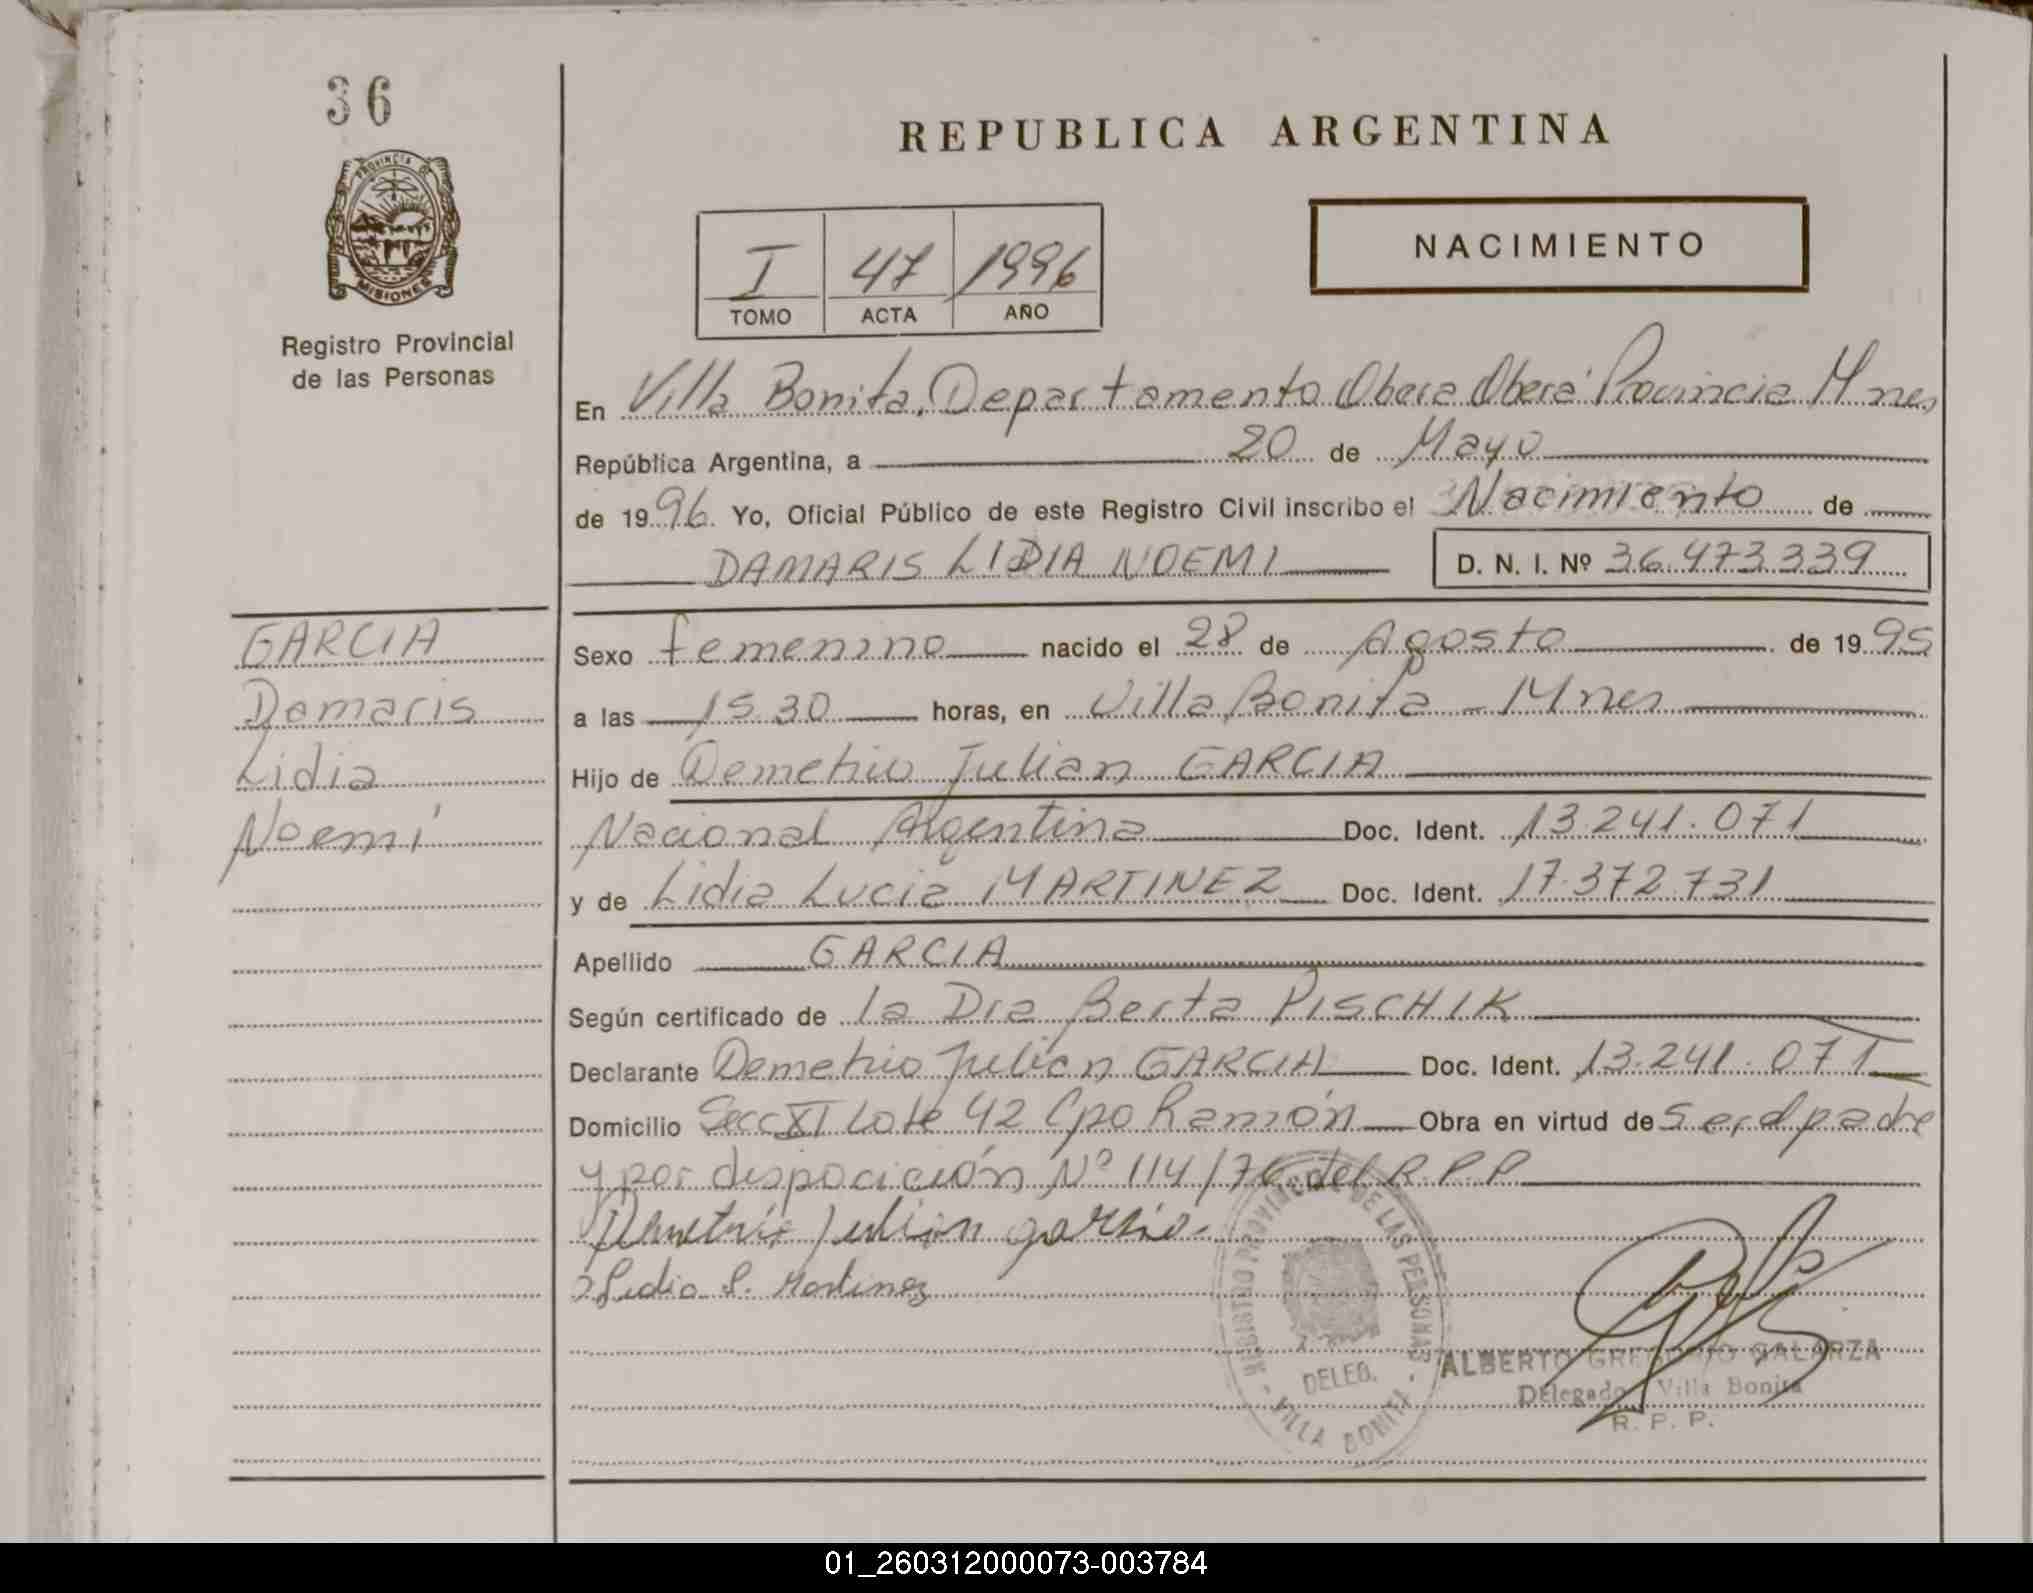 36
PROVINCIA DE
MISIONES
Registro Provincial
de las Personas
REPUBLICA ARGENTINA
I 47 1996
TOMO ACTA AÑO
NACIMIENTO
En Villa Bonita, Departamento Obera Oberá Provincia Mnes
República Argentina, a 20 de Mayo
de 1996. Yo, Oficial Público de este Registro Civil inscribo el Nacimiento de
DAMARIS LIDIA NOEMI D. N. I. Nº 36.473.339
GARCIA
Damaris
Lidia
Noemí
Sexo femenino nacido el 28 de Agosto de 1995
a las 15.30 horas, en Villa Bonita - Mnes
Hijo de Demetrio Julian GARCIA
Nacional Argentina Doc. Ident. 13.241.071
y de Lidia Lucia MARTINEZ Doc. Ident. 17.372.731
Apellido GARCIA
Según certificado de la Dra Berta PISCHIK
Declarante Demetrio Julian GARCIA Doc. Ident. 13.241.071
Domicilio Secc XI Lote 42 Cpo Ramón Obra en virtud de ser el padre
y por dispocición Nº 114/76 del R.P.P.
Demetrio Julian garsia.
Lidia L. Martinez
REGISTRO PROVINCIAL DE LAS PERSONAS
DELEG.
- VILLA BONITA -
ALBERTO GREGORIO GALARZA
Delegado Villa Bonita
R. P. P.
01_260312000073-003784